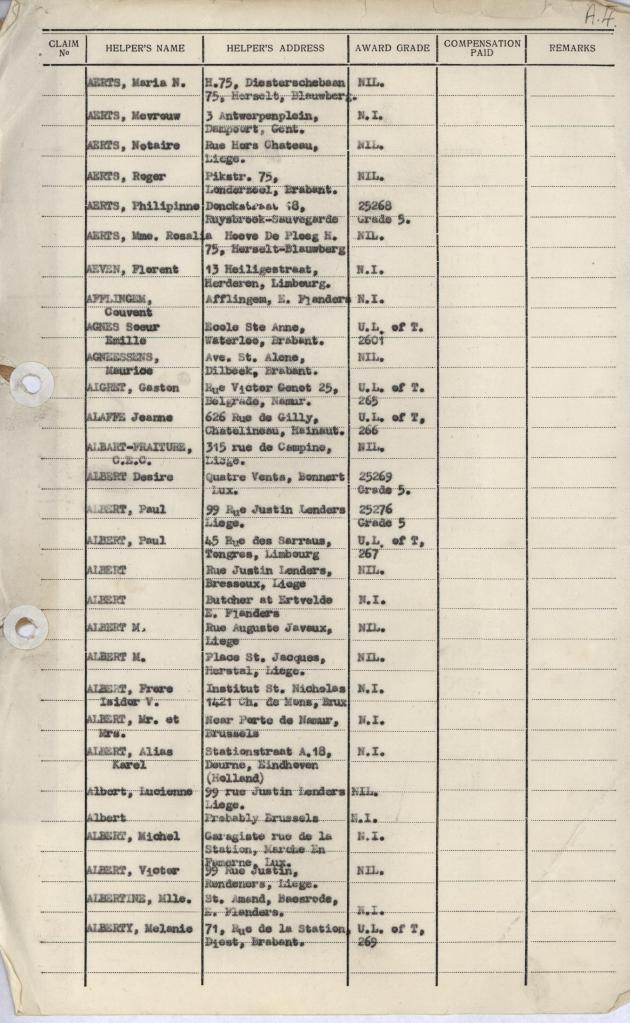 A.H.
CLAIM No HELPER'S NAME HELPER'S ADDRESS AWARD GRADE COMPENSATION PAID REMARKS
AERTS, Maria N. H.75, Diesterschebaan NIL.
75, Herselt, Blauwberg.
AERTS, Mevrouw 3 Antwerpenplein, N.I.
Dampoort, Gent.
AERTS, Notaire Rue Hors Chateau, NIL.
Liege.
AERTS, Roger Pikstr. 75, NIL.
Londerzeel, Brabant.
AERTS, Philipinne Donckstraat 18, 25268
Ruysbroek-Sauvegarde Grade 5.
AERTS, Mme. Rosalia Hoeve De Ploeg H. NIL.
75, Herselt-Blauwberg
AEVEN, Florent 13 Heiligestraat, N.I.
Herderen, Limbourg.
AFFLINGEM, Afflingem, E. Flanders N.I.
Couvent
AGNES Soeur Ecole Ste Anne, U.L. of T.
Emille Waterloo, Brabant. 2601
AGNEESSENS, Ave. St. Alene, NIL.
Maurice Dilbeek, Brabant.
AIGRET, Gaston Rue Victor Genot 25, U.L. of T.
Belgrade, Namur. 265
ALAFFE Jeanne 626 Rue de Gilly, U.L. of T,
Chatelineau, Hainaut. 266
ALBART-FRAITURE, 315 rue de Campine, NIL.
C.E.C. Liege.
ALBERT Desire Quatre Vents, Bonnert 25269
Lux. Grade 5.
ALBERT, Paul 99 Rue Justin Lenders 25276
Liege. Grade 5
ALBERT, Paul 45 Rue des Sarraus, U.L. of T,
Tongres, Limbourg 267
ALBERT Rue Justin Lenders, NIL.
Bressoux, Liege
ALBERT Butcher at Ertvelde N.I.
E. Flanders
ALBERT M. Rue Auguste Javaux, NIL.
Liege
ALBERT M. Place St. Jacques, NIL.
Herstal, Liege.
ALBERT, Frere Institut St. Nicholas N.I.
Isidor V. 1421 Ch. de Mons, Brux
ALBERT, Mr. et Near Porte de Namur, N.I.
Mrs. Brussels
ALBERT, Alias Stationstraat A.18, N.I.
Karel Deurne, Eindhoven
(Holland)
Albert, Lucienne 99 rue Justin Lenders NIL.
Liege.
Albert Probably Brussels N.I.
ALBERT, Michel Garagiste rue de la N.I.
Station, Marche En
Famorne, Lux.
ALBERT, Victor 99 Rue Justin, NIL.
Rendeners, Liege.
ALBERTINE, Mlle. St. Amand, Baesrode,
E. Flanders. N.I.
ALBERTY, Melanie 71, Rue de la Station, U.L. of T,
Diest, Brabant. 269